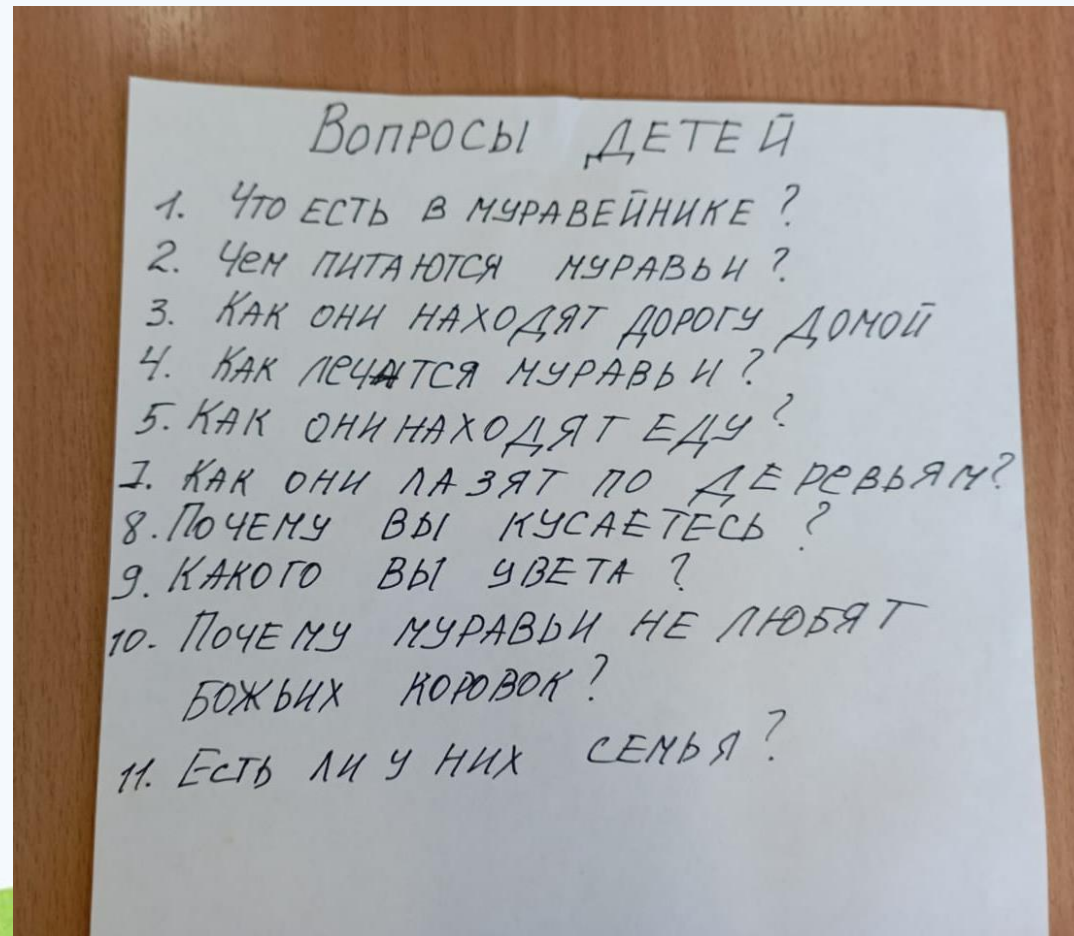 ВОПРОСЫ ДЕТЕЙ
1. ЧТО ЕСТЬ В МУРАВЕЙНИКЕ?
2. ЧЕМ ПИТАЮТСЯ МУРАВЬИ?
3. КАК ОНИ НАХОДЯТ ДОРОГУ ДОМОЙ
4. КАК ЛЕЧАТСЯ МУРАВЬИ?
5. КАК ОНИ НАХОДЯТ ЕДУ?
7. КАК ОНИ ЛАЗЯТ ПО ДЕРЕВЬЯМ?
8. ПОЧЕМУ ВЫ КУСАЕТЕСЬ?
9. КАКОГО ВЫ ЦВЕТА?
10. ПОЧЕМУ МУРАВЬИ НЕ ЛЮБЯТ
БОЖЬИХ КОРОВОК?
11. ЕСТЬ ЛИ У НИХ СЕМЬЯ?